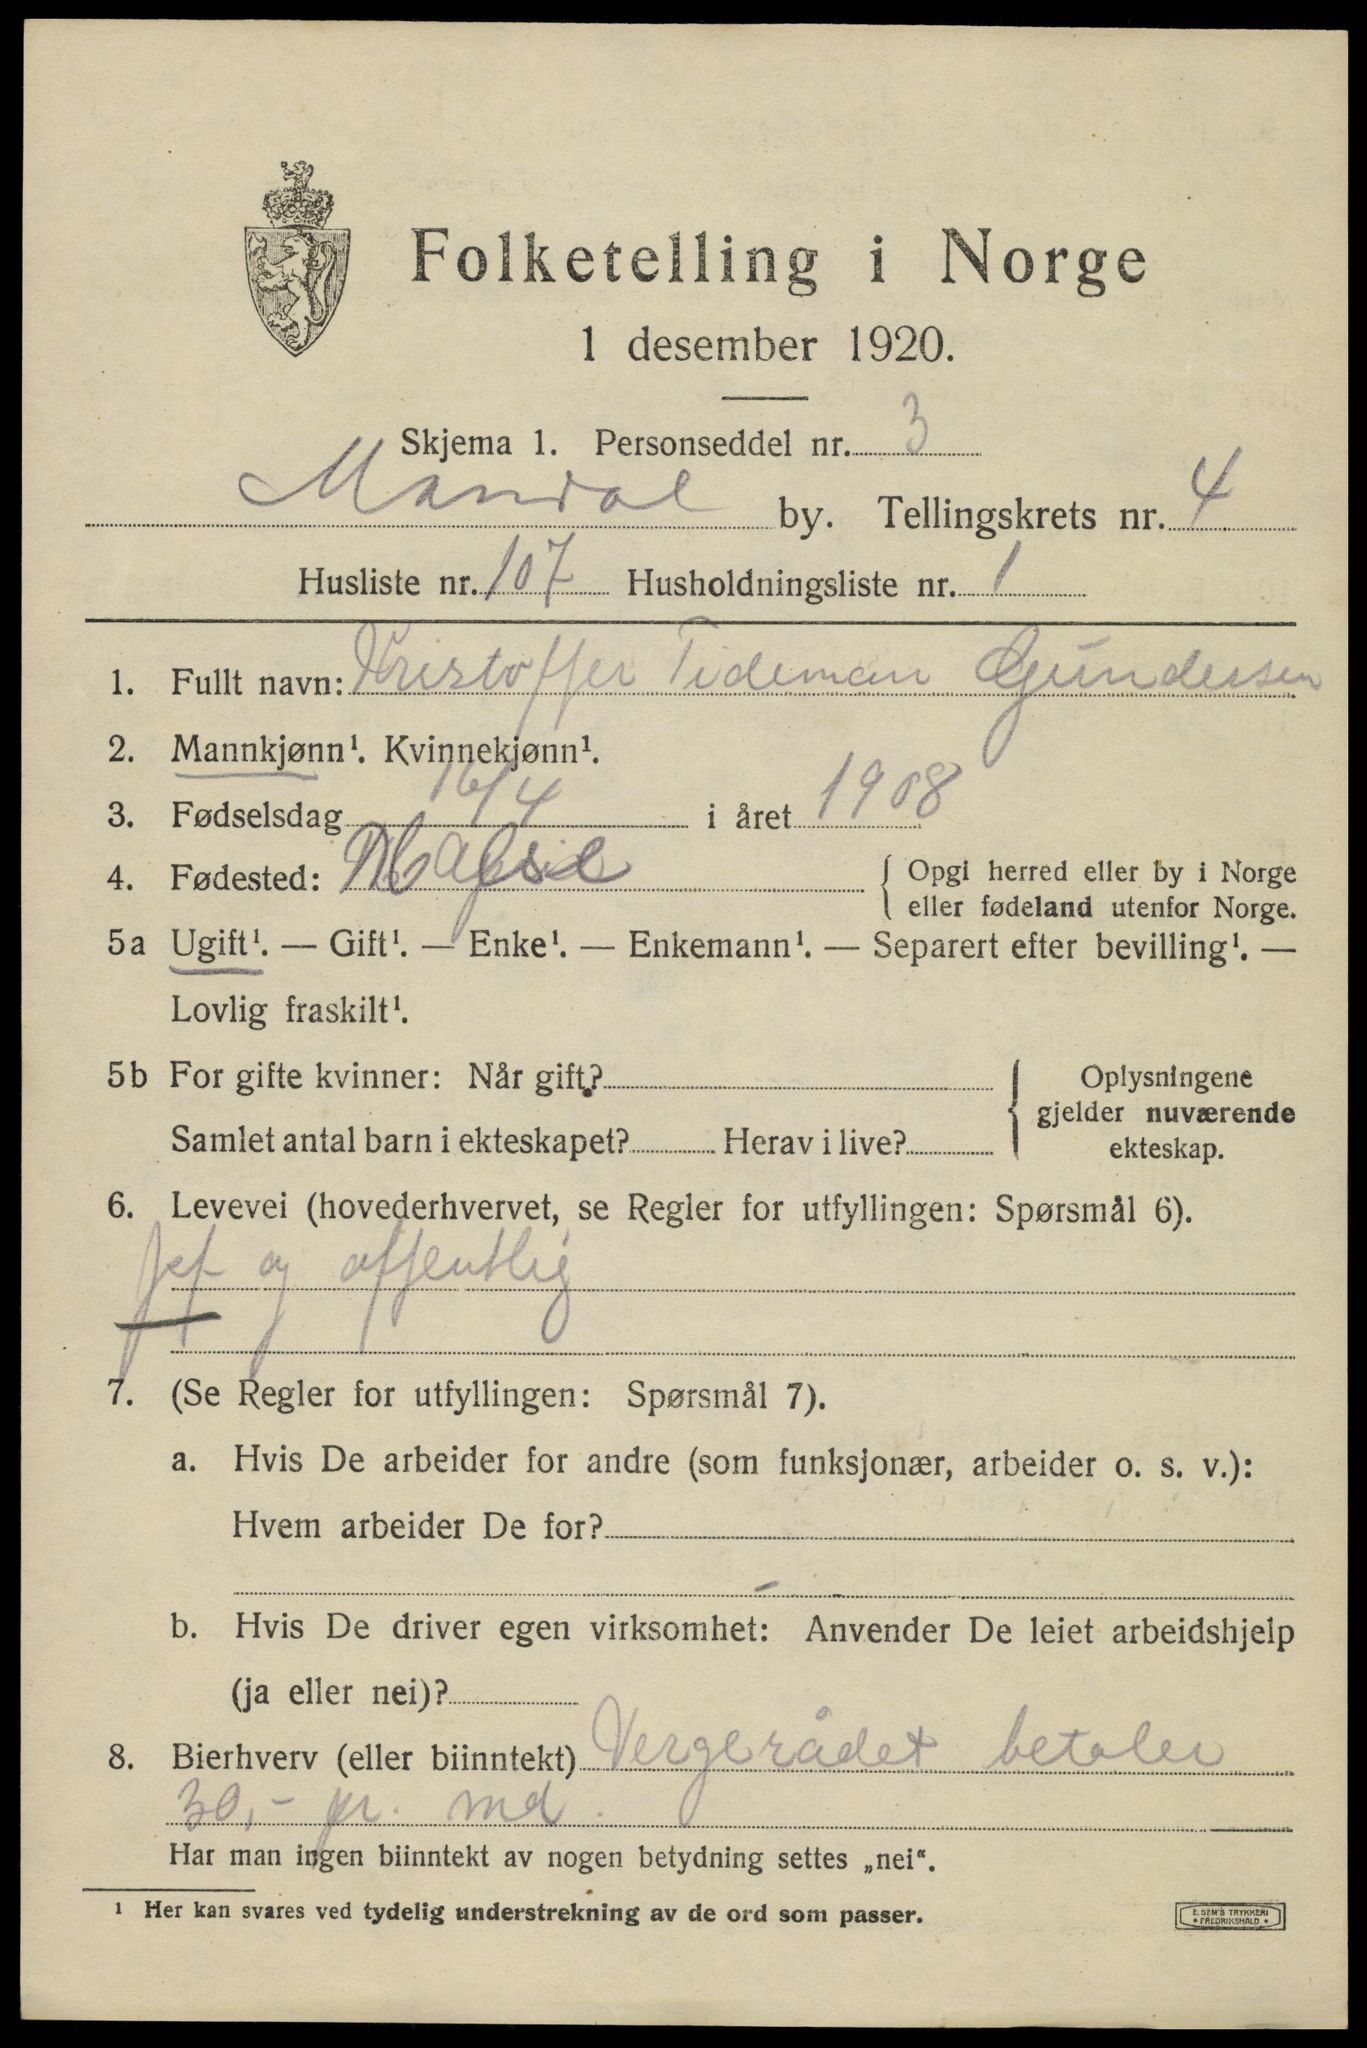 Folketelling i Norge
1 desember 1920.
Skjema 1. Personseddel nr. 3
Mandal by. Tellingskrets nr. 4
Husliste nr. 107 Husholdningsliste nr. 1
1. Fullt navn: Kristoffer Tideman Gundersen
2. Mannkjønn¹. Kvinnekjønn¹.
3. Fødselsdag 16/4 i året 1908
4. Fødested: { Opgi herred eller by i Norge
eller fødeland utenfor Norge.
5a Ugift¹. — Gift¹. — Enke¹. — Enkemann¹. — Separert efter bevilling¹. —
Lovlig fraskilt¹.
5b For gifte kvinner: Når gift? { Oplysningene
gjelder nuværende
Samlet antal barn i ekteskapet? Herav i live?
ekteskap.
6. Levevei (hovederhvervet, se Regler for utfyllingen: Spørsmål 6).
og offentlig
7. (Se Regler for utfyllingen: Spørsmål 7).
a. Hvis De arbeider for andre (som funksjonær, arbeider o. s. v.):
Hvem arbeider De for?
b. Hvis De driver egen virksomhet: Anvender De leiet arbeidshjelp
(ja eller nei)?
8. Bierhverv (eller biinntekt) Vergerådet betaler
30,- pr. md.
Har man ingen biinntekt av nogen betydning settes „nei“.
¹ Her kan svares ved tydelig understrekning av de ord som passer.
E. SEM'S TRYKKERI
• FREDRIKSHALD •